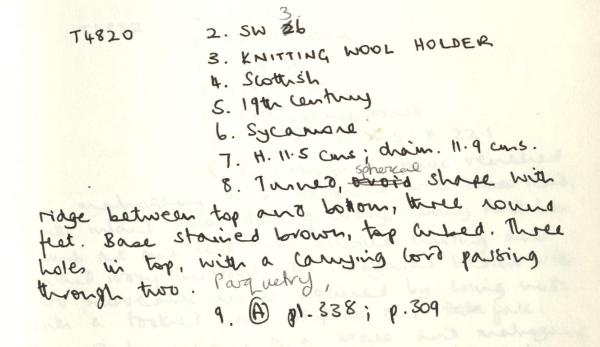 T4820
2. SW 3b
3. KNITTING WOOL HOLDER
4. Scottish
5. 19th century
6. Sycamore
7. H. 11.5 cms; diam. 11.9 cms.
8. Turned, spherical shape with
ridge between top and bottom, three round
feet. Base stained brown, top Three
holes in top, with a carrying cord passing
through two. Parquetry,
9. Ⓐ pl. 338; p. 309